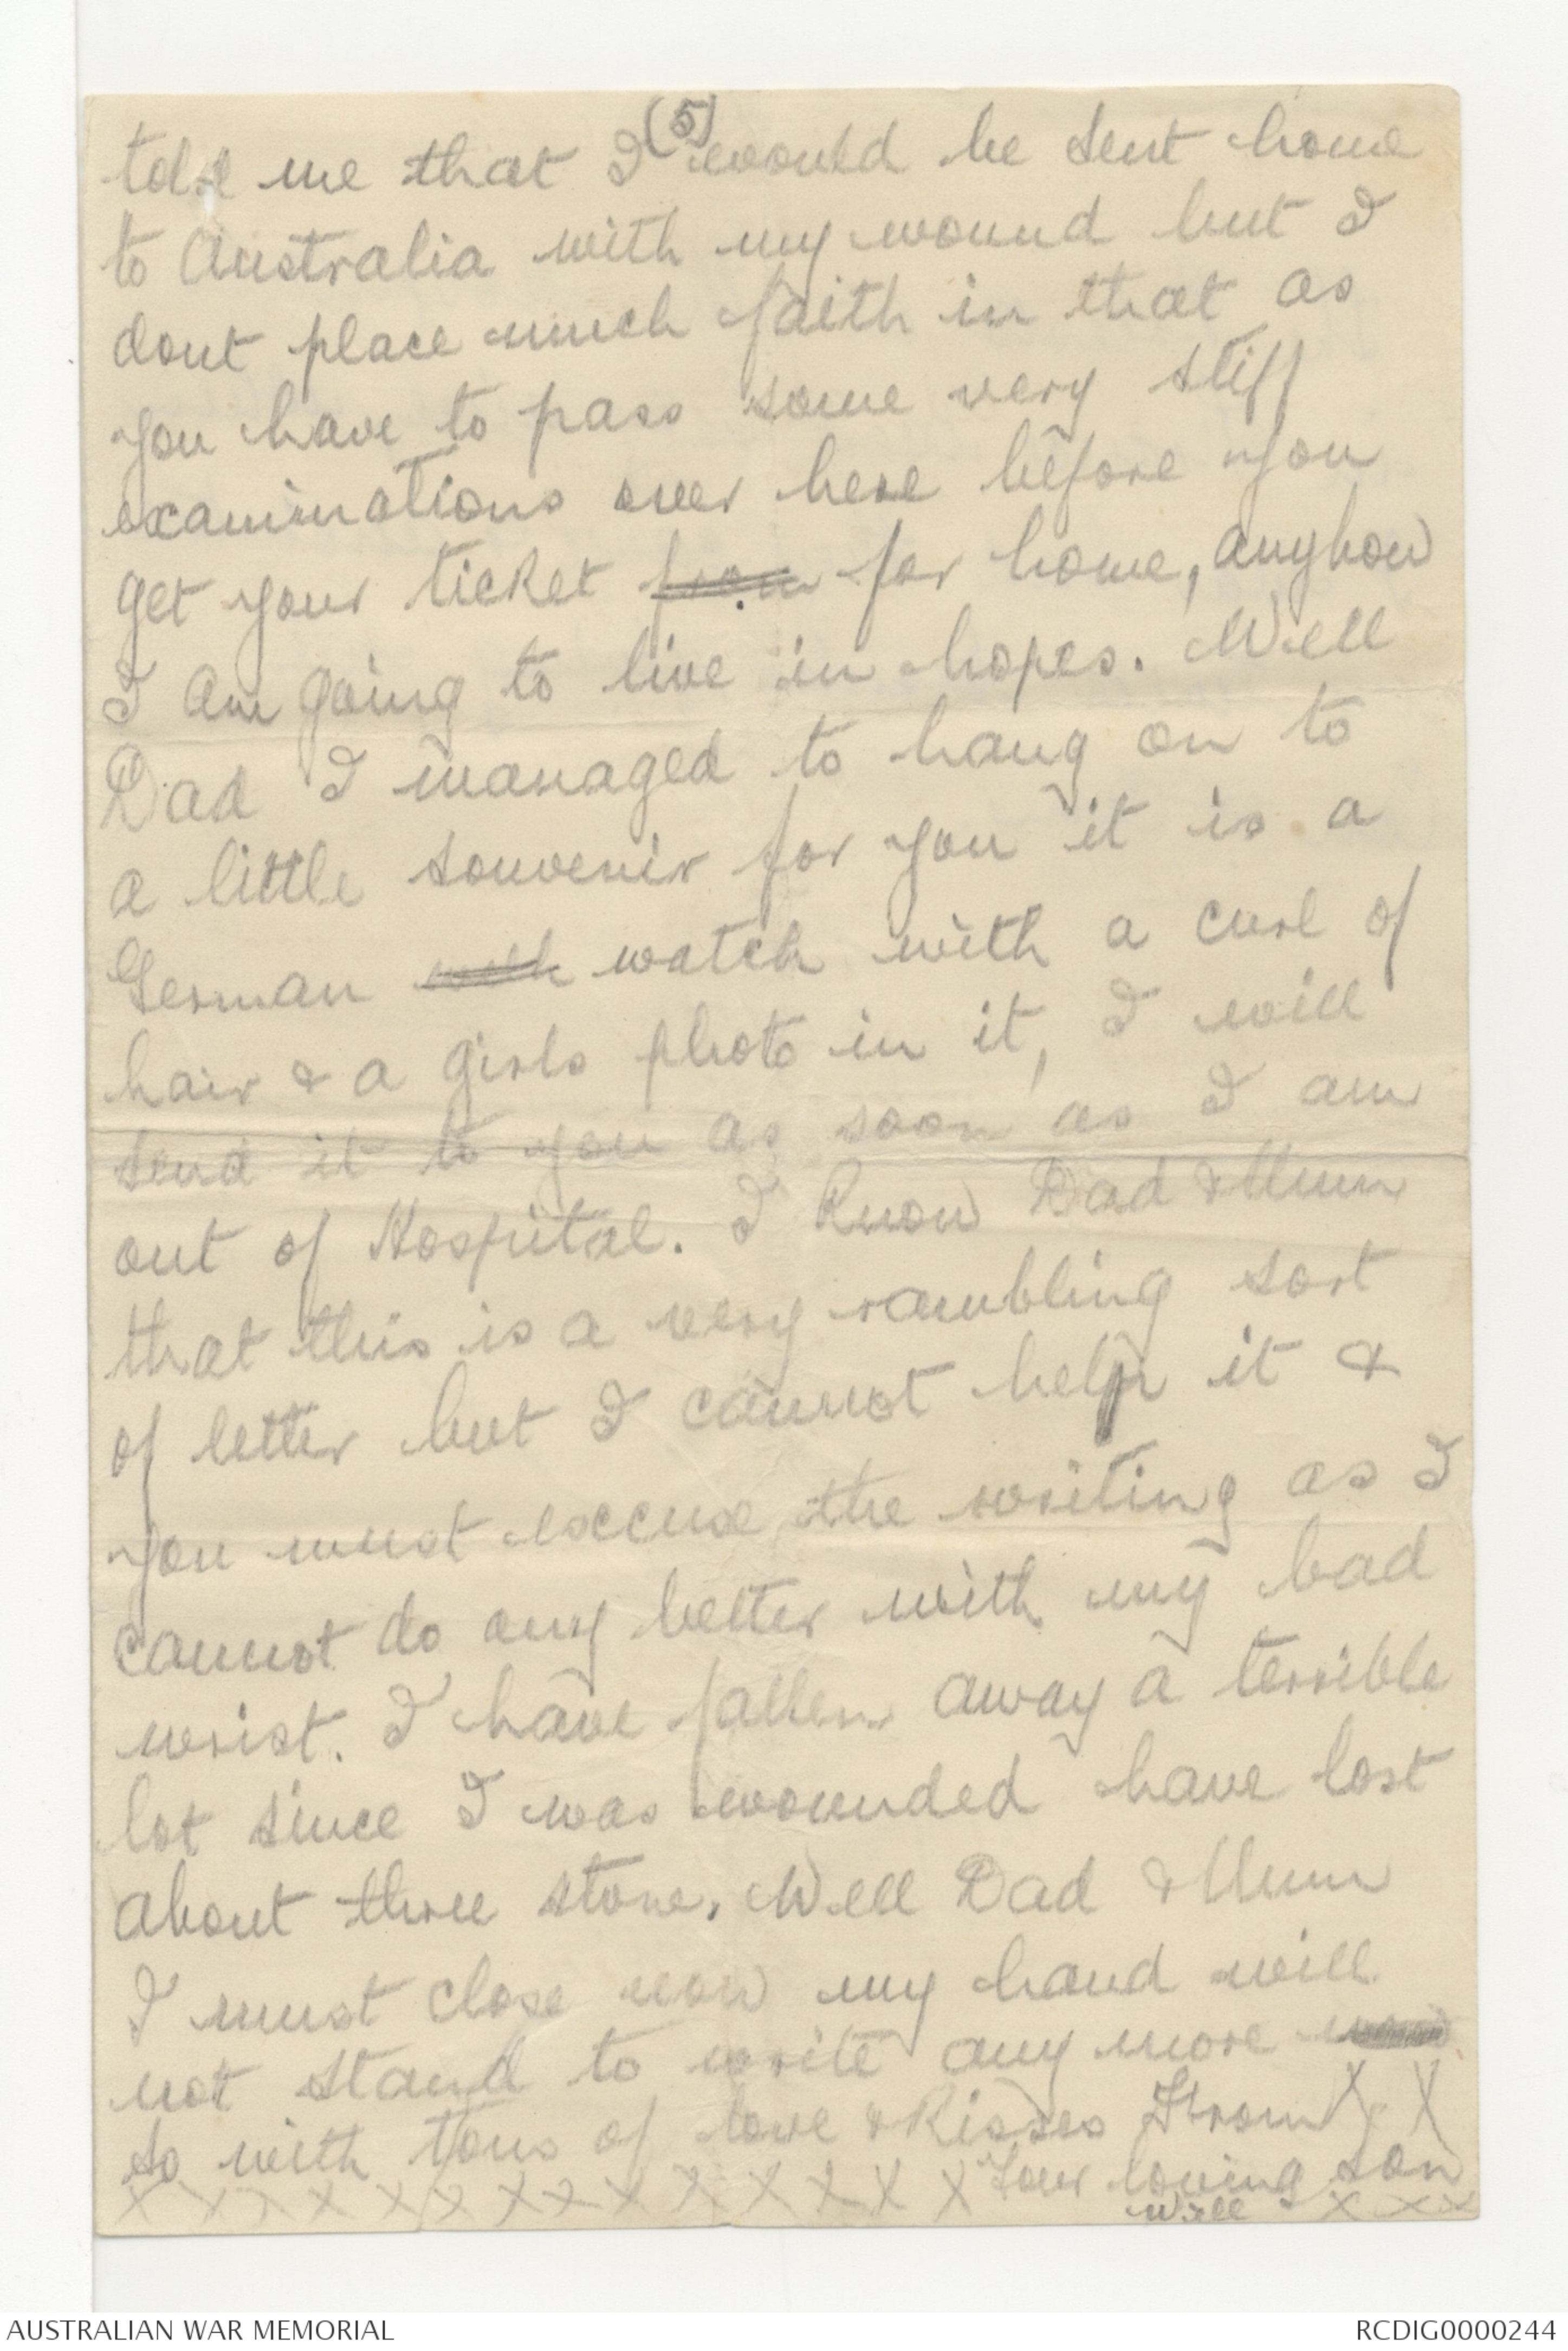 (5)
told me that I would be sent home
to Australia with my wound but I
dont place much faith in that as
you have to pass some very stiff
examinations over here before you
get your ticket from for home, anyhow
I am going to live in hopes. Well
Dad I managed to hang on to
a little souvenir for you it is a
German with watch with a curl of
hair & a girls photo in it, I will
send it to you as soon as I am
out of Hospital. I know Dad & Mum
that this is a very rambling sort
of letter but I cannot help it &
you must excuse the writing as I
cannot do any better with my bad
wrist. I have fallen away a terrible
lot since I was wounded have lost
about three stone. Well Dad & Mum
I must close now my hand will
not stand to write any more
so with tons of love & kisses From X X
X X X X X X X X X X X X X X Your loving son
Will X X X
AUSTRALIAN WAR MEMORIAL
RCDIG0000244